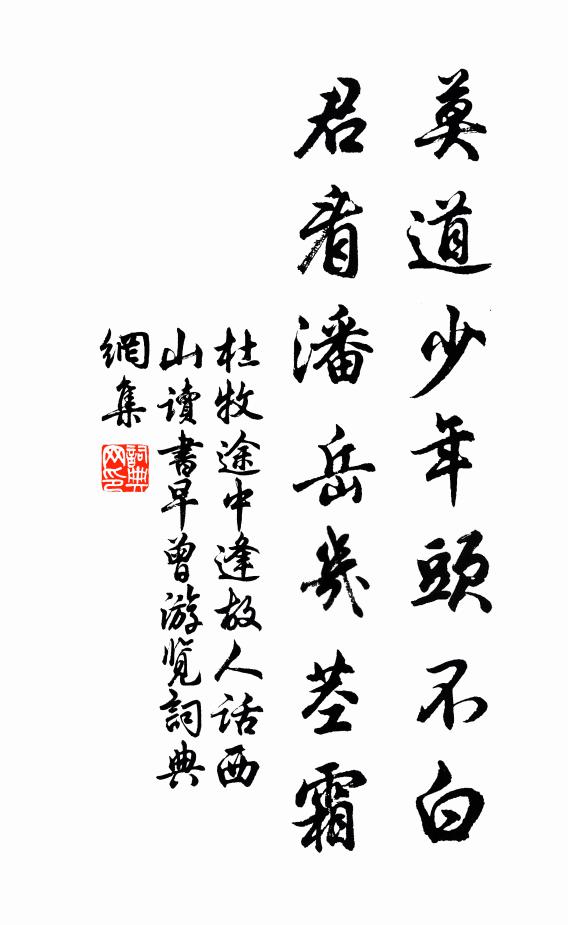 莫道少年頭不白
君看潘岳幾莖霜
杜牧途中逢故人話西
山讀書早曾游覽詞典
網集
詞典網印